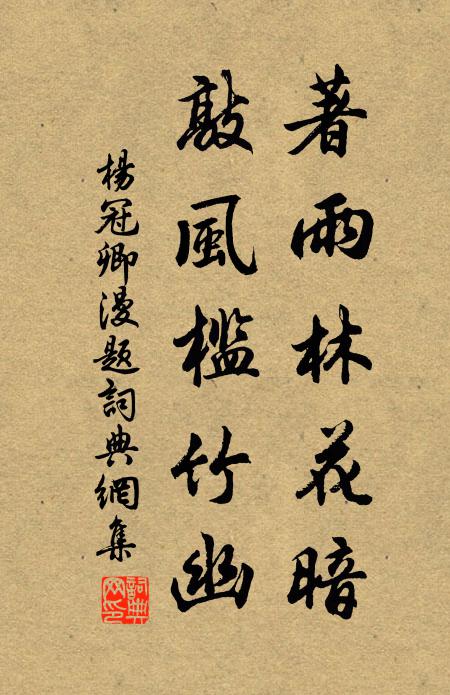 著雨林花暗
敲風檻竹幽
楊冠卿漫題詞典網集
詞典網印